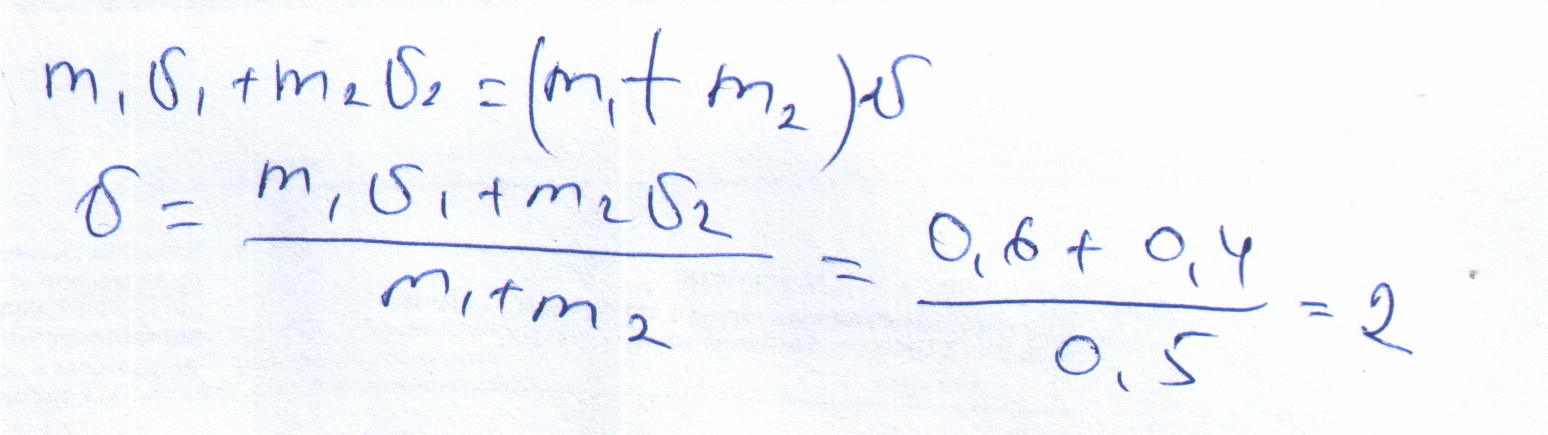 m₁υ₁ + m₂υ₂ = (m₁ + m₂)υ
υ = (m₁υ₁ + m₂υ₂) / (m₁ + m₂) = (0,6 + 0,4) / 0,5 = 2